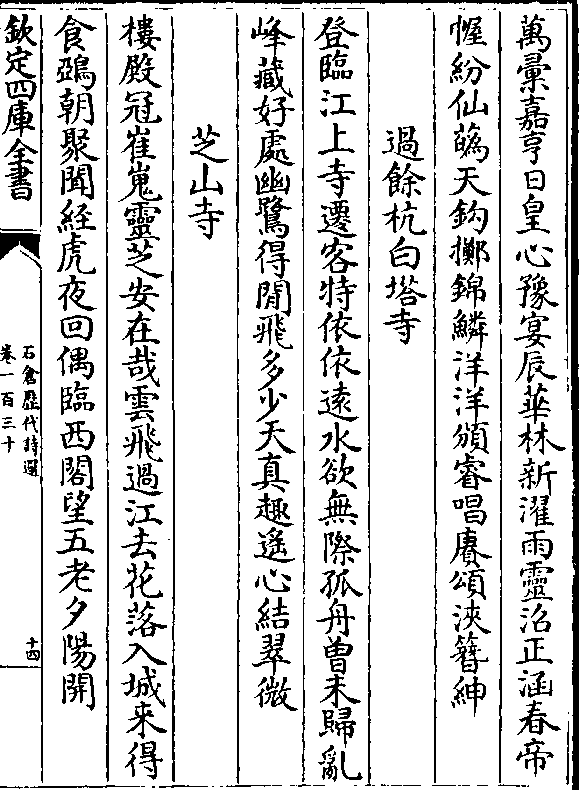 萬彚嘉亨日皇心豫宴辰華林新濯雨靈沼正涵春帝
幄紛仙蘤天鈎擲錦鱗洋洋頒睿唱賡頌浹簪紳
過餘杭白塔寺
登臨江上寺遷客特依依遠水欲無際孤舟曽未歸亂
峰藏好處幽鷺得閒飛多少天真趣遙心結翠微
芝山寺
樓殿冠崔嵬靈芝安在哉雲飛過江去花落入城来得
食鵶朝聚聞經虎夜回偶臨西閣望五老夕陽開
欽定四庫全書
石倉歷代詩選
卷一百三十
十四